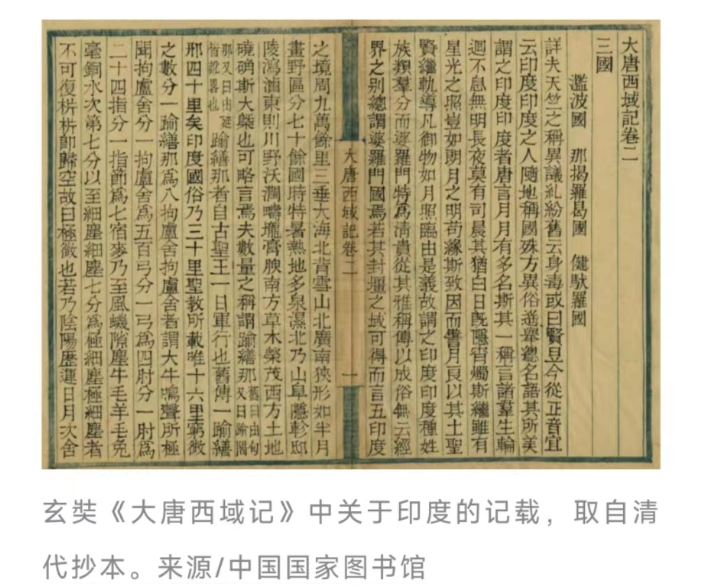 大唐西域記卷二
三國
濫波國 那揭羅曷國 健馱羅國
詳夫天竺之稱異議糺紛舊云身毒或曰賢豆今從正音宜
云印度印度之人隨地稱國殊方異俗遙舉總名語其所美
謂之印度印度者唐言月月有多名斯其一稱言諸羣生輪
迴不息無明長夜莫有司晨其猶白日既隱宵燭斯繼雖有
星光之照豈如朗月之明苟緣斯致因而譬月良以其土聖
賢繼軌導凡御物如月照臨由是義故謂之印度印度種姓
族類羣分而婆羅門特爲清貴從其雅稱傳以成俗無云經
界之別總謂婆羅門國焉若其封疆之域可得而言五印度
大唐西域記卷二 一
之境周九萬餘里三垂大海北背雪山北廣南狹形如半月
畫野區分七十餘國時特暑熱地多泉濕北乃山阜隱軫邱
陵潟滷東則川野沃潤疇壠膏腴南方草木榮茂西方土地
磽确斯大槩也可略言焉夫數量之稱謂踰繕那 舊曰由旬又曰踰闍
那又曰由延皆訛略也 踰繕那者自古聖王一日軍行也舊傳一踰繕
那四十里矣印度國俗乃三十里聖教所載唯十六里窮微
之數分一踰繕那爲八拘盧舍拘盧舍者謂大牛鳴聲所極
聞拘盧舍分一拘盧舍爲五百弓分一弓爲四肘分一肘爲
二十四指分一指節爲七宿麥乃至蝨蟣隙塵牛毛羊毛兔
毫銅水次第七分以至細塵細塵七分爲極細塵極細塵者
不可復析析即歸空故曰極微也若乃陰陽歷運日月次舍
玄奘《大唐西域记》中关于印度的记载，取自清
代抄本。来源/中国国家图书馆